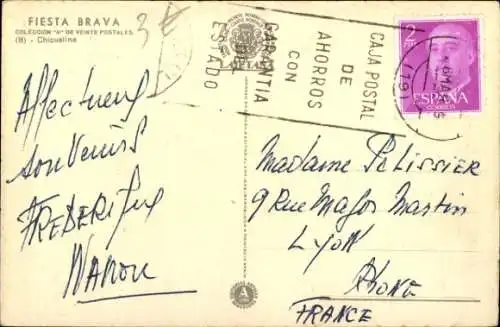 FIESTA BRAVA
COLECCION "A" DE VEINTE POSTALES.
(8) - Chicuelina
3€
CAJA POSTAL
DE
AHORROS
CON
GARANTIA
DEL
ESTADO
2
PTS
ESPAÑA
CORREOS
(19)
Affectueux
souvenirs
FREDERIque
NANOU
Madame Pelissier
9 Rue Major Martin
LyoN
RHONE
FRANCE